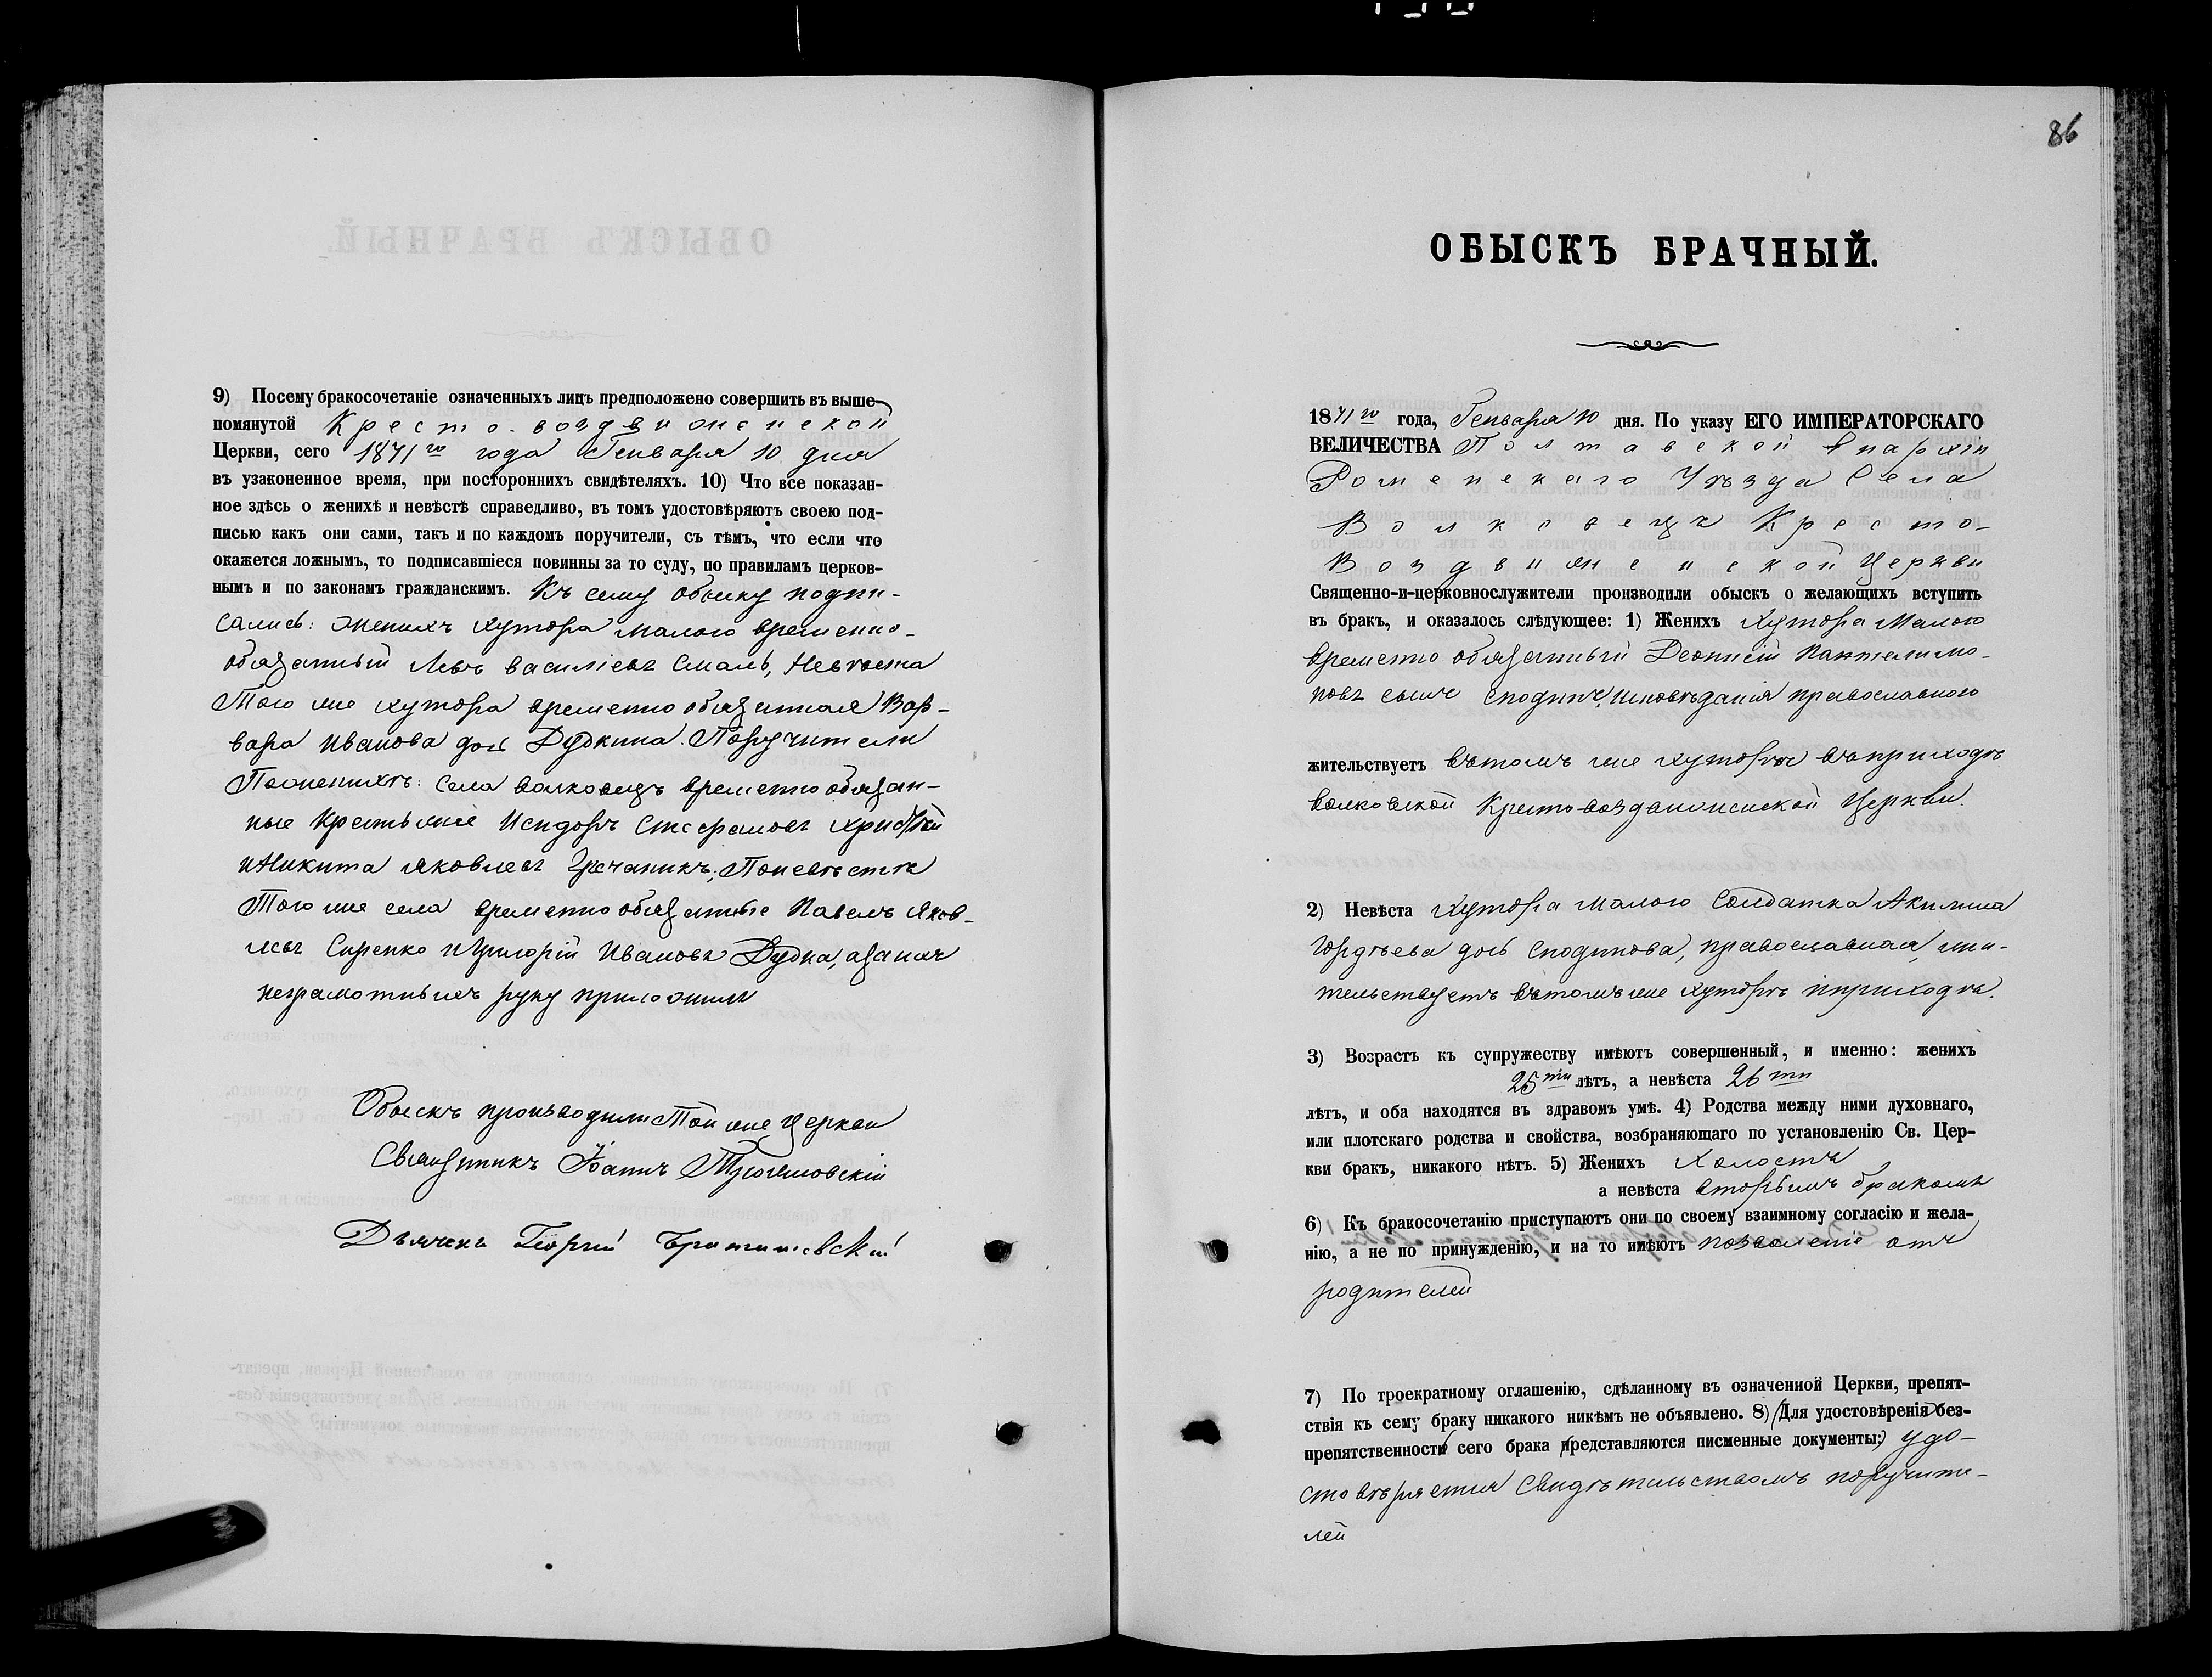 9) Посему бракосочетаніе означенныхъ лицъ предположено совершить въ выше-
помянутой Кресто-воздвиженской
Церкви, сего 1871го года Генваря 10 дня
въ узаконенное время, при постороннихъ свидѣтеляхъ. 10) Что все показан-
ное здѣсь о женихѣ и невѣстѣ справедливо, въ томъ удостовѣряютъ своею под-
писью какъ они сами, такъ и по каждомъ поручители, съ тѣмъ, что если что
окажется ложнымъ, то подписавшіеся повинны за то суду, по правиламъ церков-
нымъ и по законамъ гражданскимъ. Къ сему обыску подпи-
сались: женихъ хутора Малого временно-
обязанный Левъ Василіевъ Смаль, Невѣста
Того же хутора временно обязанная Вар-
вара Иванова дочь Дудкина. Поручители
По женихѣ: Села Волковецъ временно обязан-
ные Крестьяне Исидоръ Стефановъ
и Никита Яковлевъ Гречаникъ; По невѣстѣ
Того же села временно обязанные Павелъ Яков-
левъ Сиренко и Григорій Ивановъ Дудка, а за нихъ
неграмотныхъ руку приложилъ
Обыскъ производили Той же Церкви
Священникъ Іоаннъ
Дьячекъ Георгій
86
ОБЫСКЪ БРАЧНЫЙ.
1871го года, Генваря 10 дня. По указу ЕГО ИМПЕРАТОРСКАГО
ВЕЛИЧЕСТВА Полтавской Епархіи
Роменского Уѣзда Села
Волковецъ Кресто-
Воздвиженской Церкви
Священно-и-церковнослужители производили обыскъ о желающихъ вступить
въ бракъ, и оказалось слѣдующее: 1) Женихъ Хутора Малого
временно обязанный Деонисій Пантелимо-
новъ сынъ Сподинъ, исповѣданія православного
жительствуетъ въ томъ же хуторѣ въ приходѣ
Волковской Кресто-воздвиженской Церкви.
2) Невѣста Хутора Малого Солдатка Акилина
Гордѣева дочь Сподинова, православная, жи-
тельствуетъ въ томъ же хуторѣ и приходѣ.
3) Возрастъ къ супружеству имѣютъ совершенный, и именно: женихъ
25ти лѣтъ, а невѣста 26ти
лѣтъ, и оба находятся въ здравомъ умѣ. 4) Родства между ними духовнаго,
или плотскаго родства и свойства, возбраняющаго по установленію Св. Цер-
кви бракъ, никакого нѣтъ. 5) Женихъ Холостъ
а невѣста вторымъ бракомъ
6) Къ бракосочетанію приступаютъ они по своему взаимному согласію и жела-
нію, а не по принужденію, и на то имѣютъ позволеніе отъ
родителей
7) По троекратному оглашенію, сдѣланному въ означенной Церкви, препят-
ствія къ сему браку никакого никѣмъ не объявлено. 8) (Для удостовѣренія) без-
препятственности сего брака (представляются писменные документы:) удо-
стовѣряется Свидѣтельствомъ поручите-
лей